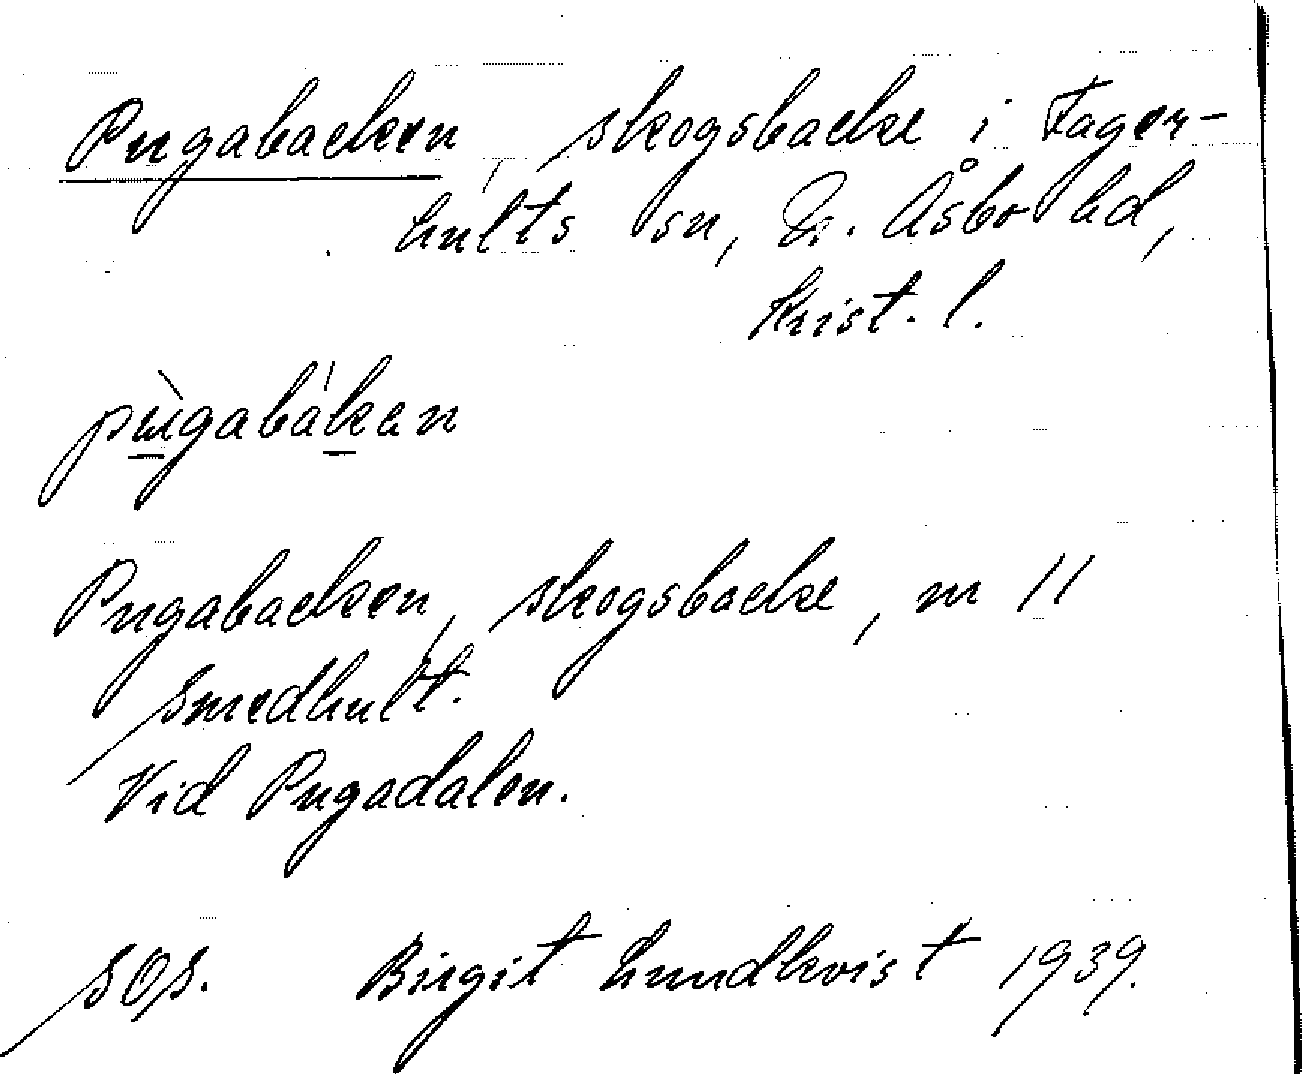 Pugabacken, skogsbacke i Fager-
hults sn, N. Åsbo hd,
Krist. l.
pùgabákan
Pugabacken, skogsbacke, m 11
Smedhult.
Vid Pugadalen.
SOS. Birgit Lundkvist 1939.